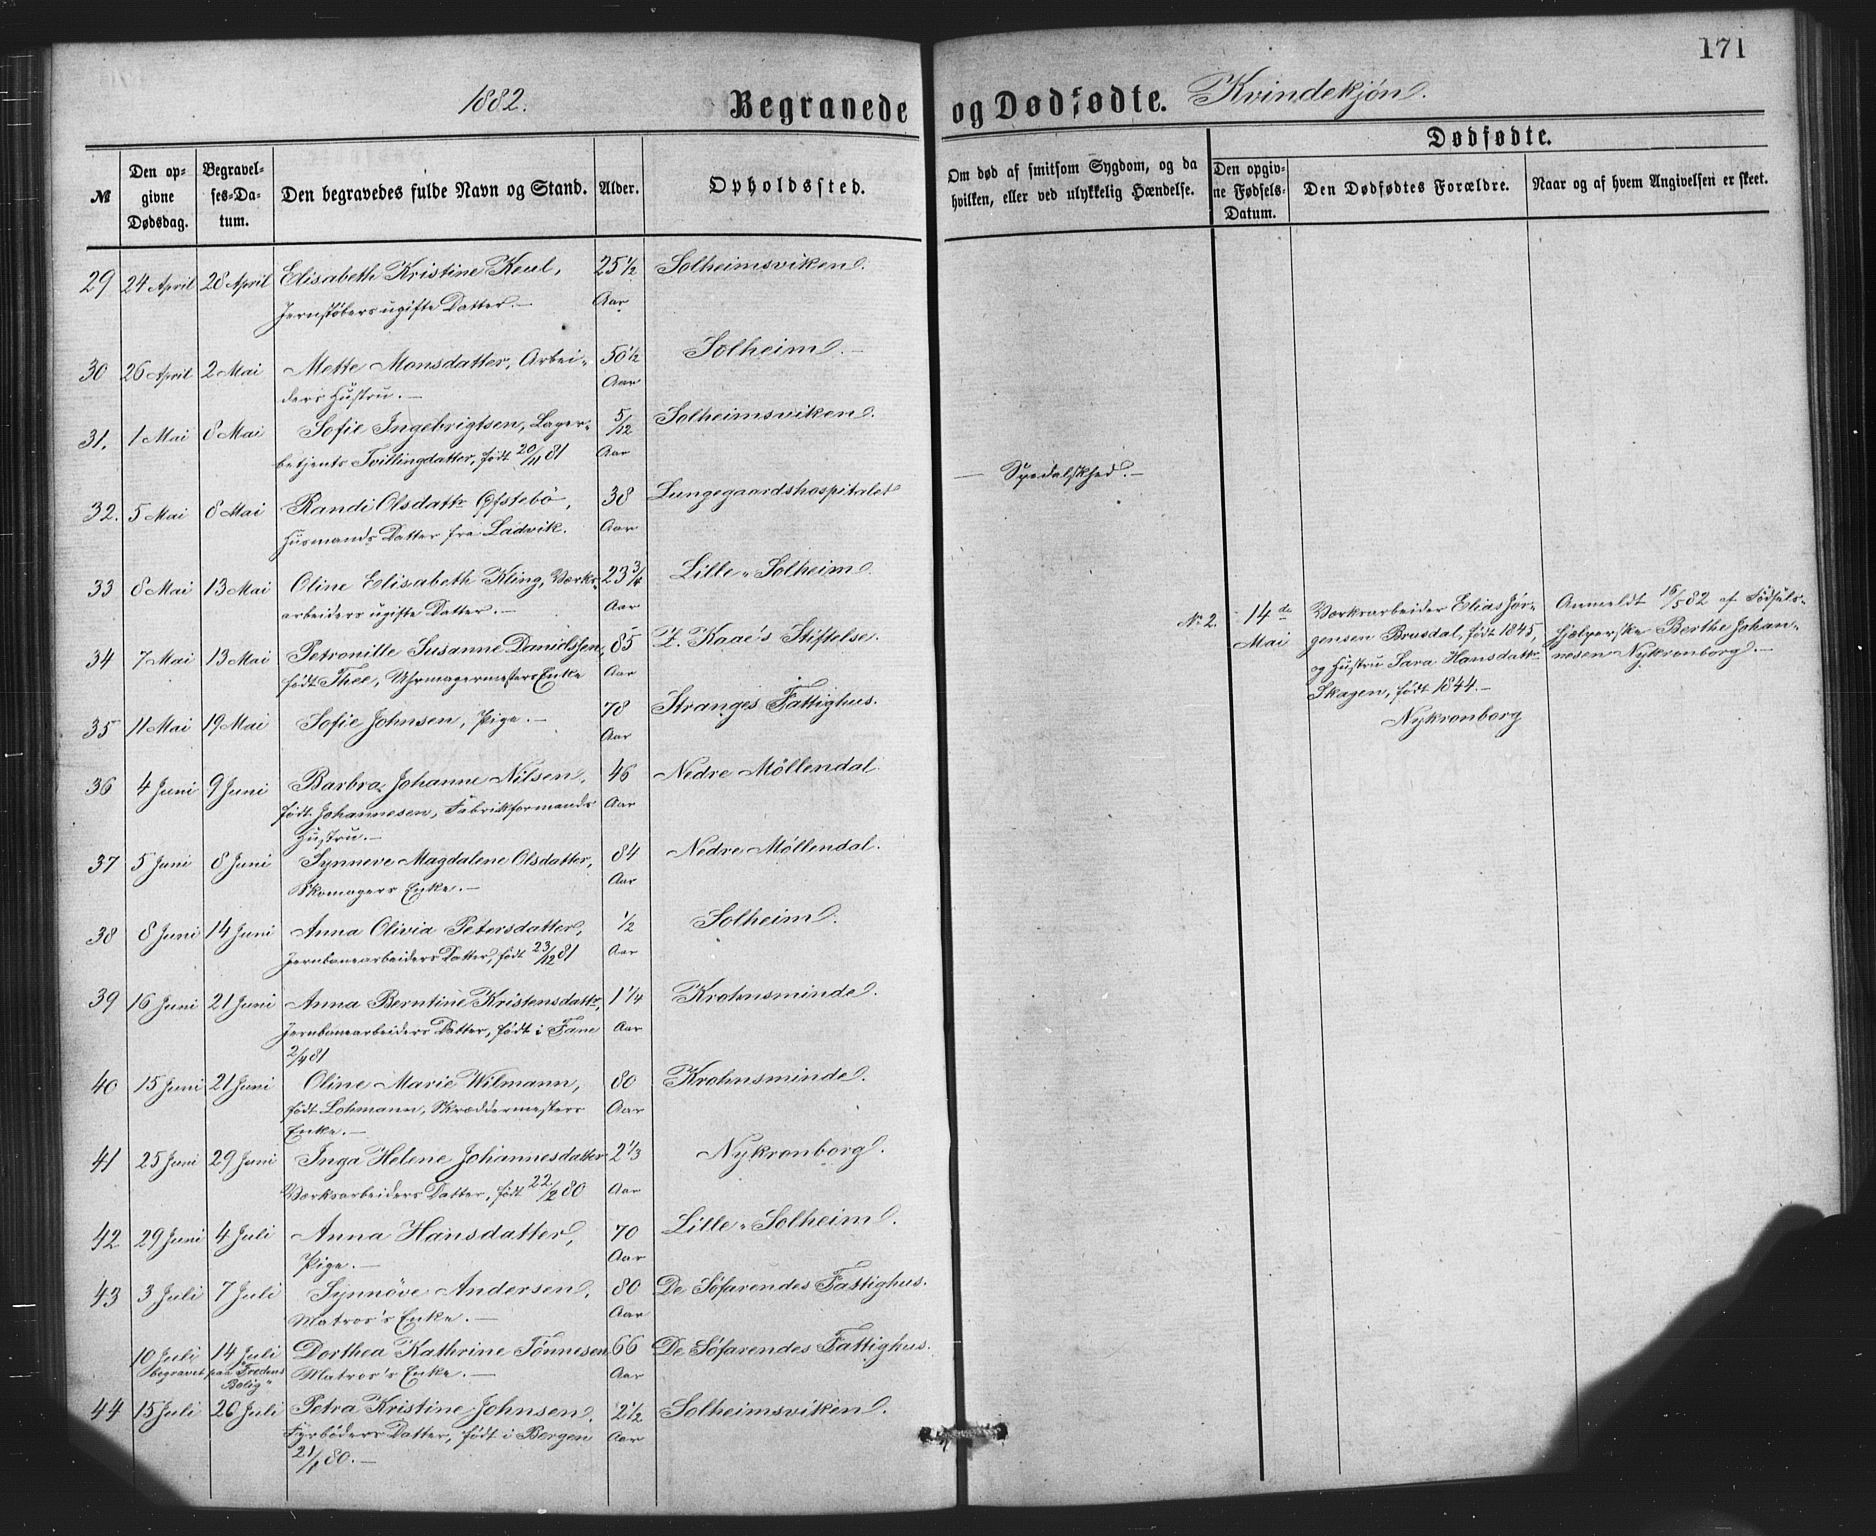 171
1882.
Begravede og Dødfødte. Kvindekjøn.
Dødfødte.
№
Den opgivne Dødsdag.
Begravelses-Datum.
Den begravedes fulde Navn og Stand.
Alder.
Opholdssted.
Om død af smitsom Sygdom, og da
hvilken, eller ved ulykkelig Hændelse.
Den opgivne Fødsels-Datum.
Den Dødfødtes Forældre.
Naar og af hvem Angivelsen er skeet.
29 24 April 28 April Elisabeth Kristine Keul, 25½ Solheimsviken.
Jernstøbers ugifte Datter.— Aar
30 26 April 2 Mai Mette Monsdatter, Arbei- 50½ Solheim.—
ders Hustru.— Aar
31. 1 Mai 8 Mai Sofie Ingebrigtsen, Lager- 5/12 Solheimsviken.
betjents Tvillingdatter, født 20/11 81 Aar
32. 5 Mai 8 Mai Randi Olsdattr Øfstebö, 38 Lungegaardshospitalet — Spedalskhed.—
Husmands Datter fra Ladvik. Aar
33 8 Mai 13 Mai Oline Elisabeth Kling, Værks- 23¾ Lille-Solheim.
arbeiders ugifte Datter.— Aar
34 7 Mai 13 Mai Petronille Susanne Danielsen, 85 Z. Kaae's Stiftelse.
født Thee, Uhrmagermesters Enke Aar
35 11 Mai 19 Mai Sofie Johnsen, Pige.— 78 Stranges Fattighus.
Aar
36 4 Juni 9 Juni Barbra Johanne Nilsen, 46 Nedre Möllendal.
født Johannesen, Fabrikformands Aar
Hustru.—
37 5 Juni 8 Juni Synneve Magdalene Olsdatter, 84 Nedre Möllendal.
Skomagers Enke.— Aar
38 8 Juni 14 Juni Anna Olivia Petersdatter, ½ Solheim.
Jernbanearbeiders Datter, født 23/12 81 Aar
39 16 Juni 21 Juni Anna Berntine Kristensdattr, 1¼ Krohnsminde.
Jernbanearbeiders Datter, født i Fane Aar
2/4 81
40 15 Juni 21 Juni Oline Marie Wilmann, 80 Krohnsminde.
født Lohmann, Skræddermesters Aar
Enke.—
41 25 Juni 29 Juni Inga Helene Johannesdatter 2⅓ Nykronborg.
Værksarbeiders Datter, født 22/2 80 Aar
42 29 Juni 4 Juli Anna Hansdatter, 70 Lille-Solheim.
Pige.— Aar
43 3 Juli 7 Juli Synnöve Andersen, 80 De Söfarendes Fattighus.
Matros's Enke.— Aar
10 Juli 14 Juli Dorthea Kathrine Tönnesen 66 De Söfarendes Fattighus.
begravet paa "Fredens Matros's Enke.— Aar
Bolig"
44 15 Juli 20 Juli Petra Kristine Johnsen, 2½ Solheimsviken.
Fyrböders Datter, født i Bergen Aar
21/1 80.—
No 2. 14de Mai
Værksarbeider Elias Jör-
gensen Brusdal, født 1845,
og Hustru Sara Hansdattr
Skagen, født 1844.—
Nykronborg
Anmeldt 16/5 82 af Födsels-
hjælperske Berthe Johan-
nesen Nykronborg.—